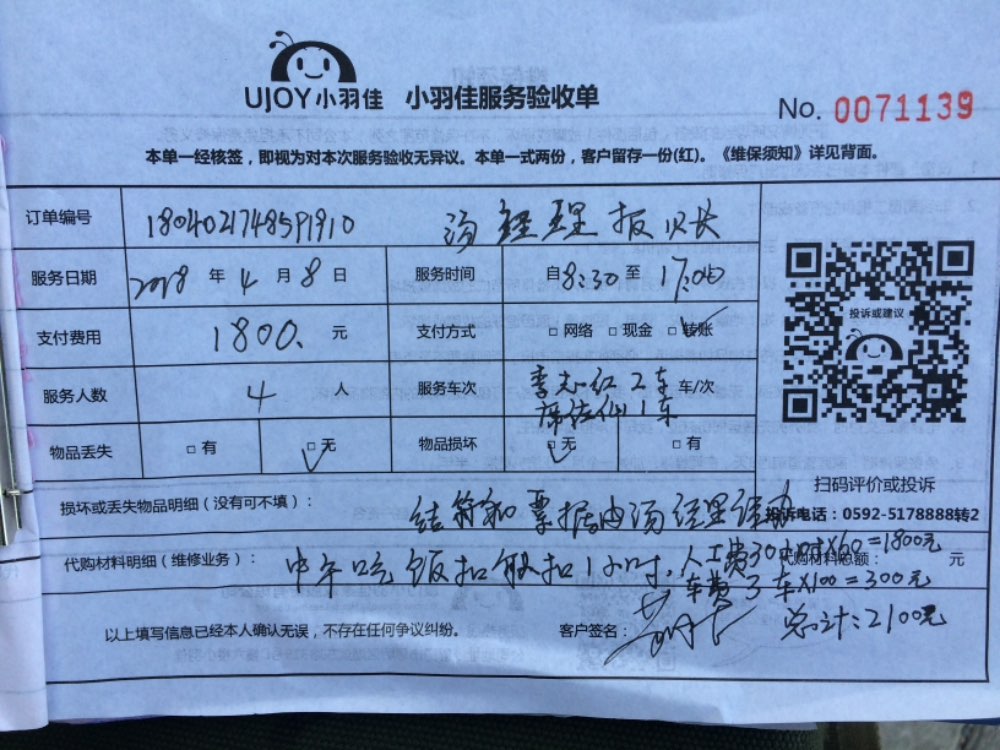 UJOY小羽佳 小羽佳服务验收单
No. 0071139
本单一经核签，即视为对本次服务验收无异议。本单一式两份，客户留存一份(红)。《维保须知》详见背面。
订单编号 1804021748591910 汤经理报队长
服务日期 2018 年 4 月 8 日 服务时间 自8:30至17:00
支付费用 1800. 元 支付方式 □网络 □现金 □转账
投诉或建议
服务人数 4 人 服务车次 李志红2车 车/次
席佐仙1车
物品丢失 □有 □无 物品损坏 □无 □有
扫码评价或投诉
损坏或丢失物品明细（没有可不填）： 结算和票据由汤经理经办
投诉电话：0592-5178888转2
代购材料明细（维修业务）： 中午吃饭扣除扣1小时. 人工费30小时X60=1800元
代购材料总额： 元
车费3车X100=300元
以上填写信息已经本人确认无误，不存在任何争议纠纷。 客户签名： 总计:2100元